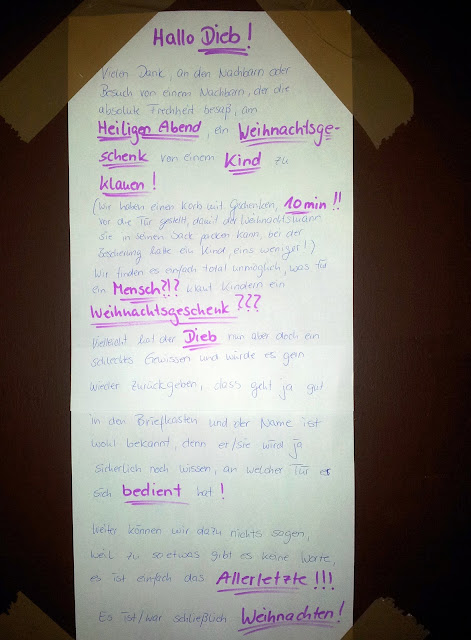 Hallo Dieb!
Vielen Dank, an den Nachbarn oder
Besuch von einem Nachbarn, der die
absolute Frechheit besaß, am
Heiligen Abend, ein Weihnachtsge-
schenk von einem Kind zu
klauen!
(Wir haben einen Korb mit Geschenken, 10min!!
vor die Tür gestellt, damit der Weihnachtsmann
sie in seinen Sack packen kann, bei der
Bescherung hatte ein Kind, eins weniger!)
Wir finden es einfach total unmöglich, was für
ein Mensch?!? klaut Kindern ein
Weihnachtsgeschenk???
Vielleicht hat der Dieb nun aber doch ein
schlechtes Gewissen und würde es gern
wieder zurückgeben, dass geht ja gut
in den Briefkasten und der Name ist
wohl bekannt, denn er/sie wird ja
sicherlich noch wissen, an welcher Tür er
sich bedient hat!
Weiter können wir dazu nichts sagen,
weil zu so etwas gibt es keine Worte,
es ist einfach das Allerletzte!!!
Es ist/war schließlich Weihnachten!